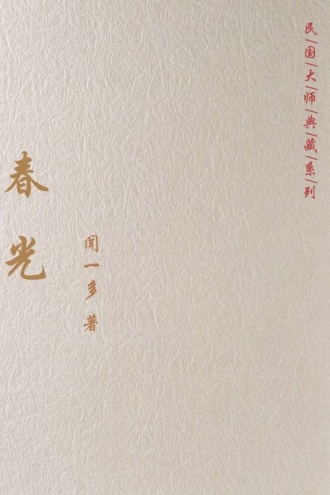 民国大师典藏系列
春光
闻一多 著